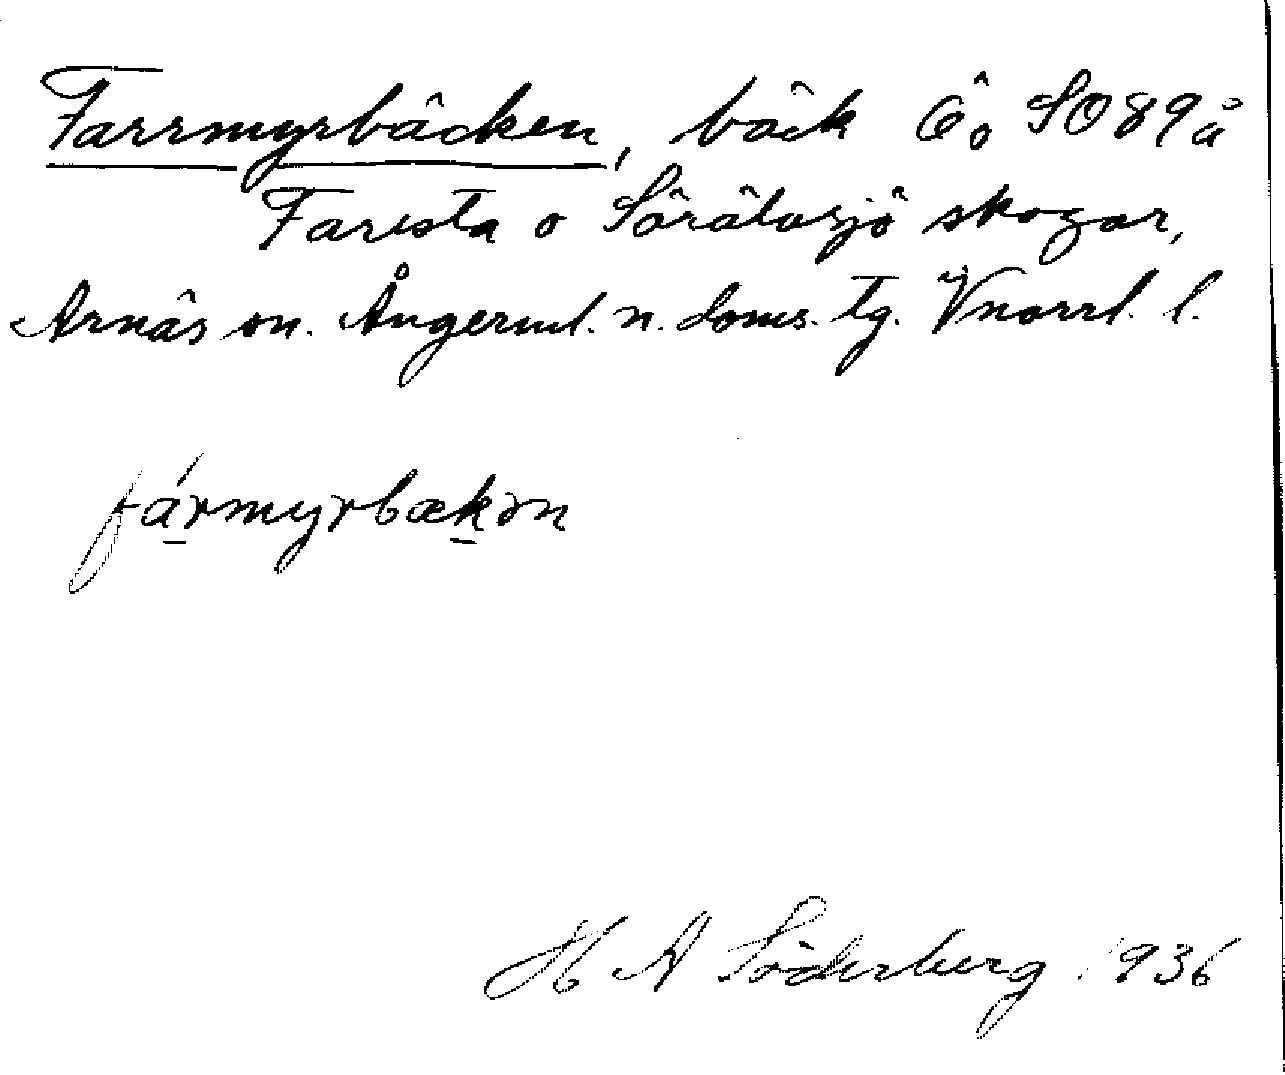 Farrmyrbäcken, bäck Öo SO89å
Faresta o Sörätvsjö skogar,
Arnäs sn. Ångerml. n. doms. tg. Vnorrl. l.
fármyrbækən
H A Söderberg 1936